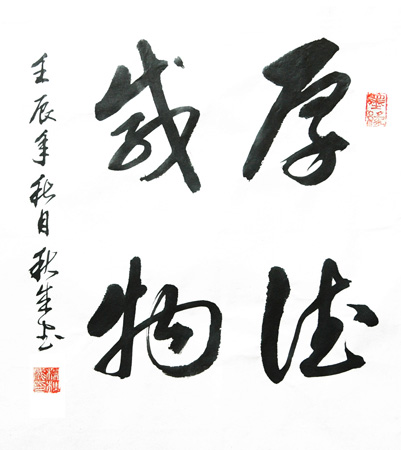 厚德
载物
壬辰年秋月秋生书